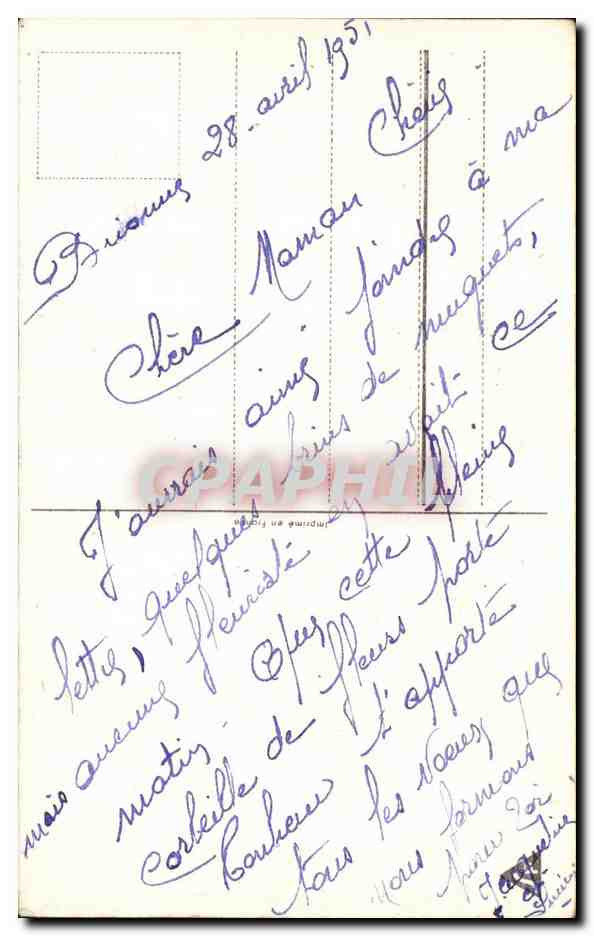 Brionne 28 avril 1951
Chère Maman Chérie
J'aurais aimé joindre à ma
lettre, quelques brins de muguets,
mais aucune fleuriste en avait ce
matin. Que cette pleine
corbeille de fleurs porte
bonheur t'apporte
tous les voeux que
nous formons
pour toi
Jacqueline
Imprimé en France
CPAPHIL